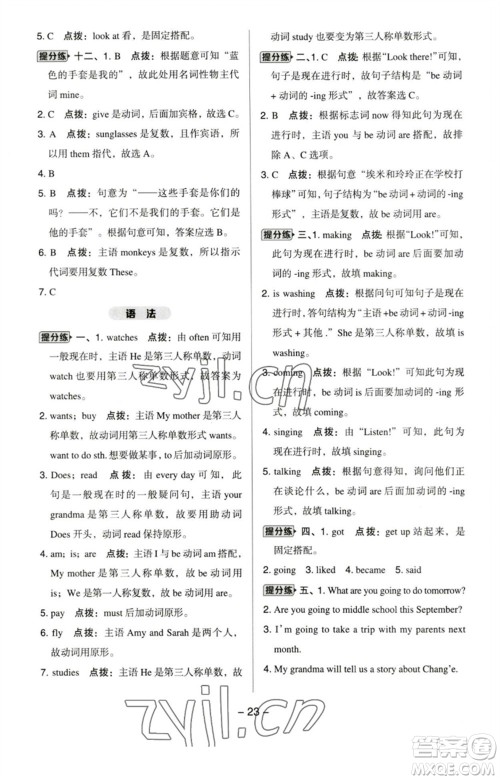 5. C 点拨：look at 是固定搭配。
提分练 十二、1. B 点拨：根据题意可知“蓝
色的手套是我的”，故此处用名词性物主代
词 mine。
2. C 点拨：give 是动词，后面加宾格，故选 C。
3. A 点拨：sunglasses 是复数，且作宾语，所
以用 them 指代，故选 A。
4. B
5. B 点拨：句意为“——这些手套是你们的
吗？——不，它们不是我们的手套。它们
是他的手套”，故答案选 B。
6. B 点拨：主语 monkeys 是复数，所以指示
代词要用复数 These。
7. C
语 法
提分练 一、1. watches 点拨：由 often 可知用
一般现在时，主语 He 是第三人称单数，动词
watch 也要用第三人称单数形式，故答案为
watches。
2. wants；buy 点拨：主语 My mother 是第三人
称单数，故动词用第三人称单数形式 wants。
want to do sth. 想要做某事，to 后加动词原形。
3. Does；read 点拨：由 every day 可知，此
句是一般现在时的一般疑问句，主语 your
grandma 是第三人称单数，故用助动词
Does 开头，动词 read 保持原形。
4. am；is；are 点拨：主语 I 与 be 动词 am 搭配，
My mother 是第三人称单数，与 be 动词 is 搭
配。We 是第一人称复数，与 be 动词 are 搭配。
5. pay 点拨：must 后加动词原形。
6. fly 点拨：主语 Amy and Sarah 是两个人，
故动词用原形。
7. studies 点拨：主语 He 是第三人称单数，故
动词 study 也要变为第三人称单数形式。
提分练 二、1. B 点拨：根据“Look there!”可知，
句子是现在进行时，故句子结构是“be 动词
+ 动词的 -ing 形式”，故答案选 B。
2. B 点拨：根据标志词 now 得知此句为现在
进行时，主语 you 与 be 动词 are 搭配，故排
除 A、C 选项。
3. B 点拨：根据句意“埃米和玲玲正在学校打
棒球”可知，句子结构为“be 动词 + 动词的 -ing
形式”，主语是复数，故 be 动词用 are。
提分练 三、1. making 点拨：根据“Look!”可
知，此句为现在进行时，are 后面要加动词
的 -ing 形式，故填 making。
2. is washing 点拨：根据问句可知句子是现在
进行时，答句结构为“主语 + be 动词 + 动词的
-ing 形式 + 其他 .”She 是第三人称单数，故填 is
washing。
3. coming 点拨：根据“Look!”可知，此句为
现在进行时，be 动词 is 后面要加动词的 -ing
形式，故填 coming。
4. singing 点拨：由“Listen!”可知，此句为现
在进行时，故填 singing。
5. talking 点拨：根据句意可知是问他们正
在谈论什么，故 be 动词 are 后加动词的 -ing
形式。
提分练 四、1. got 点拨：get up 站起来，是
固定搭配。
2. going 3. liked 4. became 5. said
提分练 五、1. What are you going to do tomorrow?
2. Are you going to middle school this September?
3. I'm going to take a trip with my parents next
month.
4. My grandma will tell us a story about Chang'e.
- 23 -
zyjl.cn
zyjl.cn
答案圈
MXQE.COM